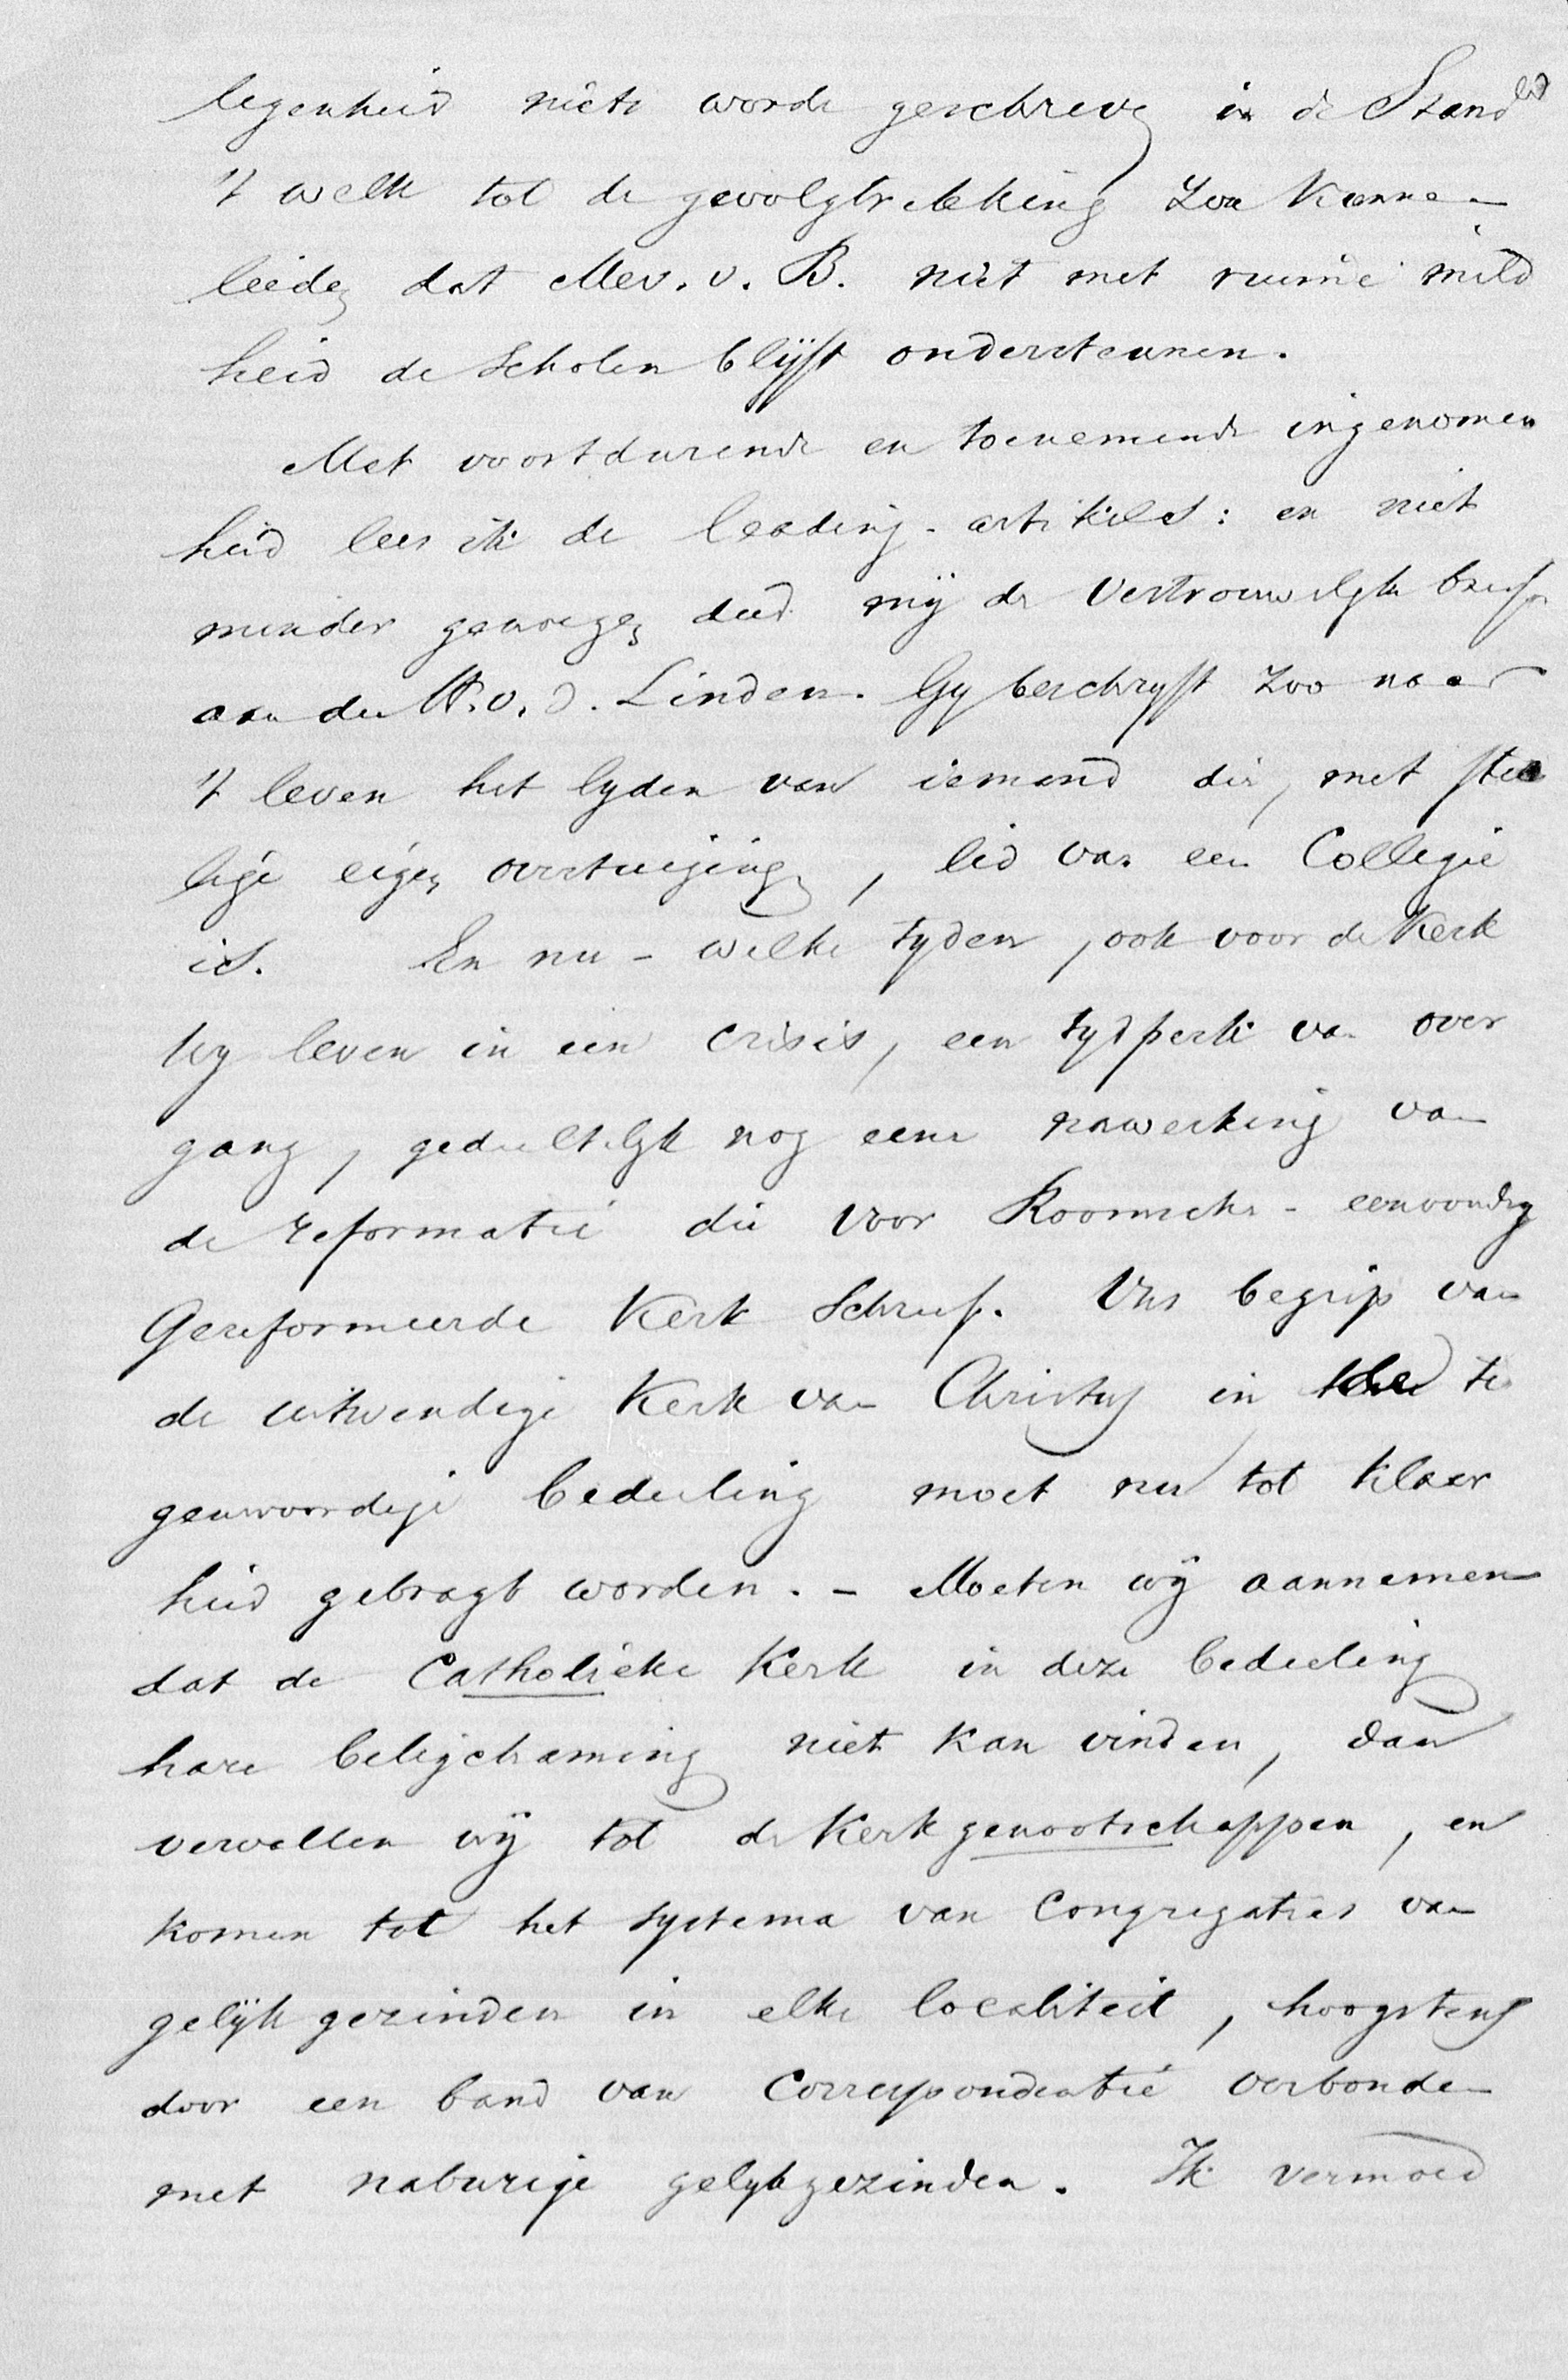 legenheid niets worde geschreven in de Standd
't welk tot de gevolgtrekking zou kunnen
leiden dat Mev. v. B. niet met ruime mild
heid de scholen blijft ondersteunen.
Met voortdurende en toenemende ingenomen
heid lees ik de leading-artikels: en niet
minder genoegen deed mij de vertrouwelyke brief
aan den H. v. d. Linden. Gy beschryft zoo naar
't leven het lyden van iemand die, met stel
lige eigen overtuiging, lid van een Collegie
is. En nu - welke tyden, ook voor de Kerk
Wy leven in een crisis, een tydperk van over
gang, gedeeltelyk nog eene nawerking van
de reformatie die voor Roomsche - eenvoudig
Gereformeerde Kerk schreef. Ons begrip van
de uitwendige Kerk van Christus in te
genwoordige bedeeling moet nu tot klaar
heid gebragt worden. - Moeten wij aannemen
dat de Catholieke Kerk in deze bedeeling
hare belijchaming niet kan vinden, dan
vervallen wij tot de Kerkgenootschappen, en
komen tot het systema van Congregaties van
gelijkgezinden in elke localiteit, hoogstens
door een band van Correspondentie verbonden
met naburige gelykgezinden. Ik vermoed